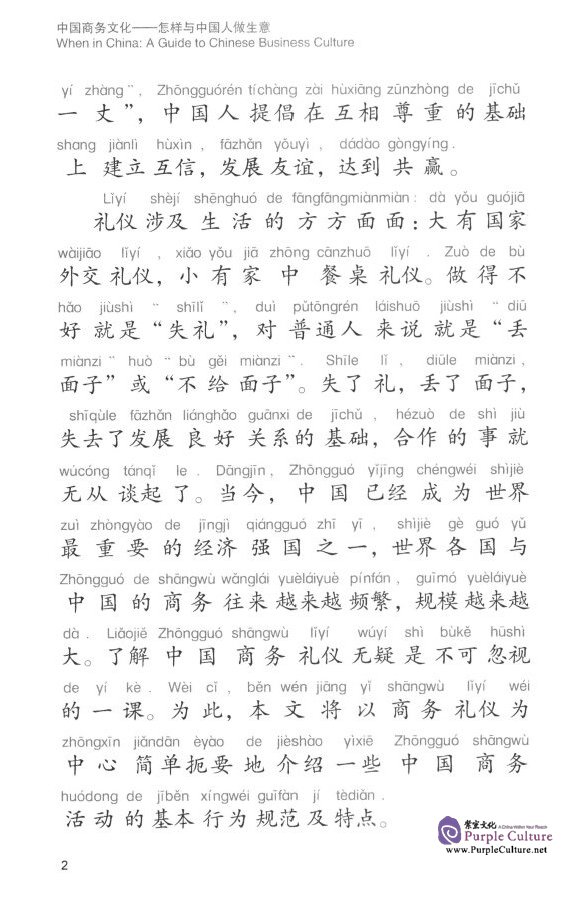 中国商务文化——怎样与中国人做生意
When in China: A Guide to Chinese Business Culture
yí zhàng”, Zhōngguórén tíchàng zài hùxiāng zūnzhòng de jīchǔ
一 丈”，中国人 提倡 在 互相 尊重 的 基础
shang jiànlì hùxìn, fāzhǎn yǒuyì, dádào gòngyíng.
上 建立 互信，发展 友谊，达到 共赢。
Lǐyí shèjí shēnghuó de fāngfāngmiànmiàn: dà yǒu guójiā
礼仪 涉及 生活 的 方方面面：大 有 国家
wàijiāo lǐyí, xiǎo yǒu jiā zhōng cānzhuō lǐyí. Zuò de bù
外交 礼仪，小 有 家 中 餐桌 礼仪。做 得 不
hǎo jiùshì “shīlǐ”, duì pǔtōngrén láishuō jiùshì “diū
好 就是 “失礼”，对 普通人 来说 就是 “丢
miànzi” huò “bù gěi miànzi”. Shīle lǐ, diūle miànzi,
面子” 或 “不 给 面子”。失了 礼，丢了 面子，
shīqùle fāzhǎn liánghǎo guānxi de jīchǔ, hézuò de shì jiù
失去了 发展 良好 关系 的 基础，合作 的 事 就
wúcóng tánqǐ le. Dāngjīn, Zhōngguó yǐjīng chéngwéi shìjiè
无从 谈起 了。当今，中国 已经 成为 世界
zuì zhòngyào de jīngjì qiángguó zhī yī, shìjiè gè guó yǔ
最 重要 的 经济 强国 之 一，世界 各 国 与
Zhōngguó de shāngwù wǎnglái yuèláiyuè pínfán, guīmó yuèláiyuè
中国 的 商务 往来 越来越 频繁，规模 越来越
dà. Liǎojiě Zhōngguó shāngwù lǐyí wúyí shì bùkě hūshì
大。了解 中国 商务 礼仪 无疑 是 不可 忽视
de yí kè. Wèi cǐ, běn wén jiāng yǐ shāngwù lǐyí wéi
的 一 课。为 此，本 文 将 以 商务 礼仪 为
zhōngxīn jiǎndān èyào de jièshào yìxiē Zhōngguó shāngwù
中心 简单 扼要 地 介绍 一些 中国 商务
huódong de jīběn xíngwéi guīfàn jí tèdiǎn.
活动 的 基本 行为 规范 及 特点。
紫宸文化 A China Within Your Reach
Purple Culture
www.PurpleCulture.net
2